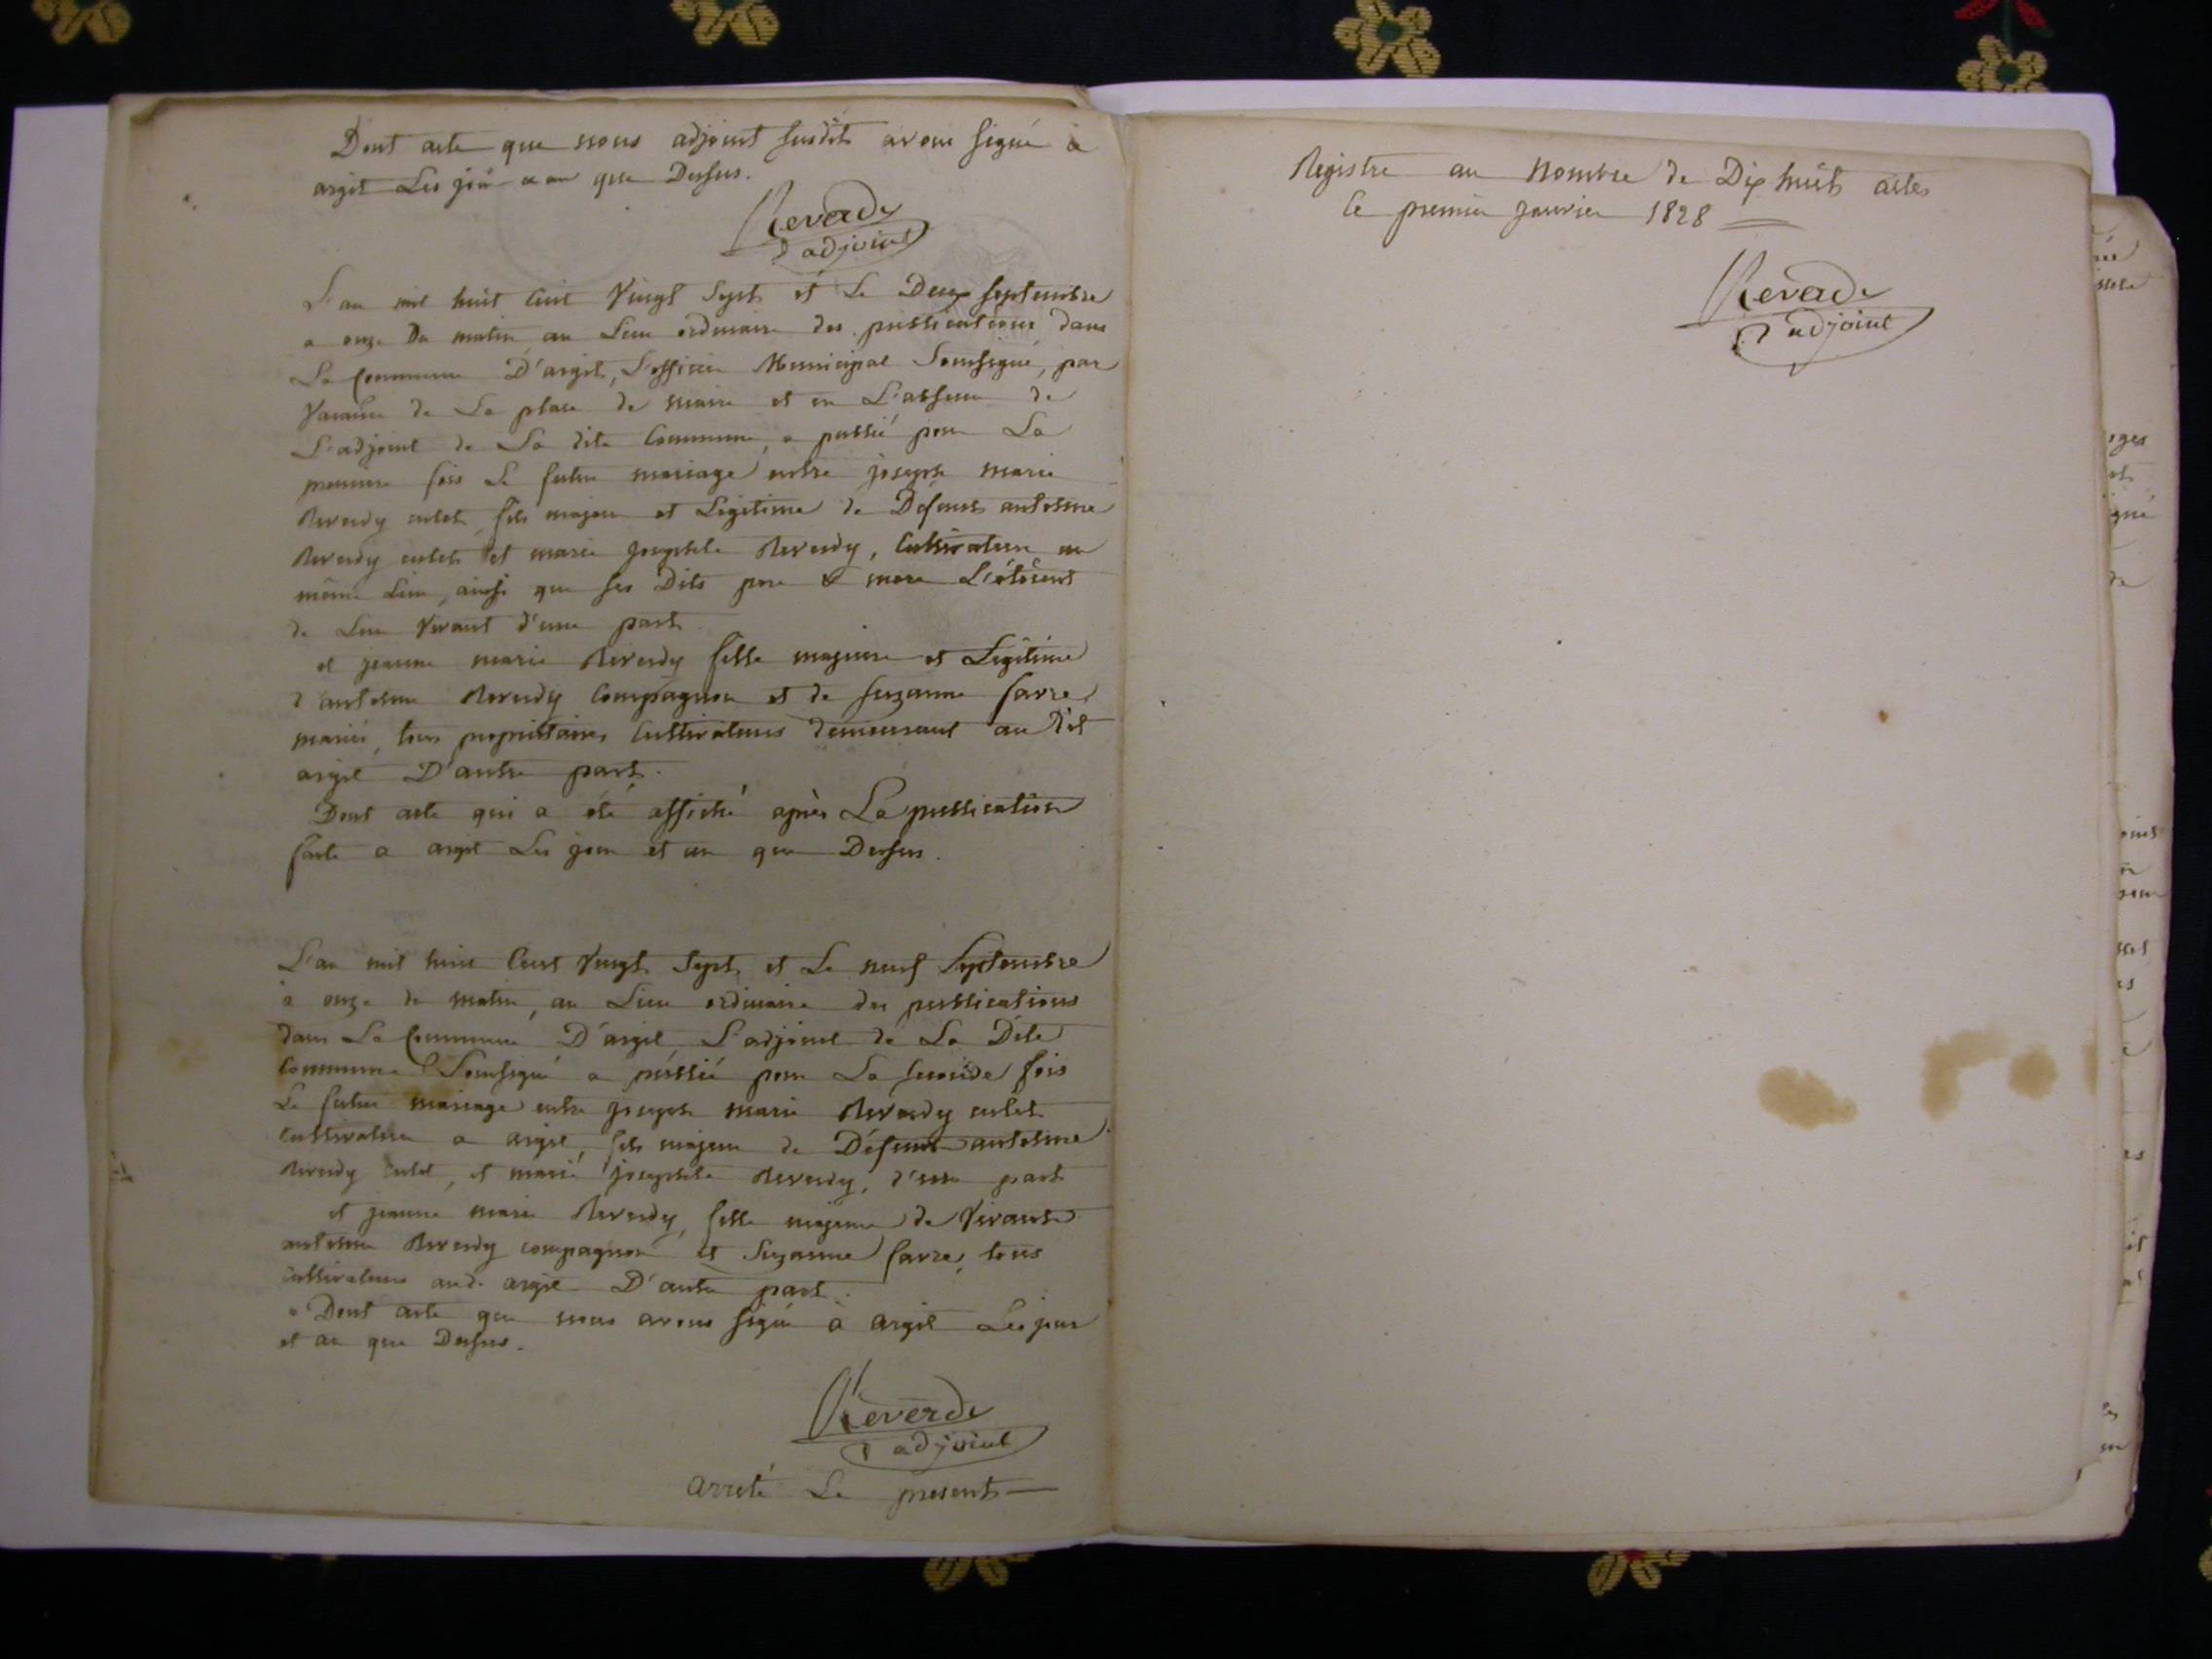 Dont acte que nous adjoint susdit avons signé à
argit Les jour et an que Dessus.
Reverdy
adjoint
L'an mil huit Cent Vingt Sept et Le Deux septembre
a onze Du matin au Lieu ordinaire des publications dans
La Commune D'argit, L'officier Municipal Soussigné, par
Vacance de La place de maire et en L'absence de
L'adjoint de La dite Commune, a publié pour La
premiere fois Le futur mariage entre joseph marie
Reverdy culet fils majeur et Légitime de Défunts antoine
Reverdy culet et marie josephte Reverdy, Cultivateur au
même Lieu, ainsi que ses Dits pere & mere L'étoient
de Leur Vivant d'une part.
et jeanne marie Reverdy fille majeure et Légitime
d'antoine Reverdy Compagnon et de suzanne favre
mariés, tous propriétaires Cultivateurs demeurant au dit
argit D'autre part.
Dont acte qui a été affiché après La publication
faite a argit Les jour et an que Dessus.
L'an mil huit Cent Vingt Sept et Le neuf Septembre
à onze du matin, au Lieu ordinaire des publications
dans La Commune D'argit L'adjoint de La Dite
Commune Soussigné a publié pour La seconde fois
Le futur mariage entre joseph marie Reverdy culet
Cultivateur a argit, fils majeur de Défunts antoine
Reverdy Culet, et marie josephte Reverdy, d'une part
et jeanne marie Reverdy, fille majeure de Vivants
antoine Reverdy compagnon et Suzanne favre, tous
cultivateurs aud. argit D'autre part.
Dont acte que nous avons signé à argit Les jour
et an que Dessus.
Reverdy
adjoint
arreté Le present
Registre au Nombre de Dix huit actes
Ce premier Janvier 1828
Reverdy
adjoint